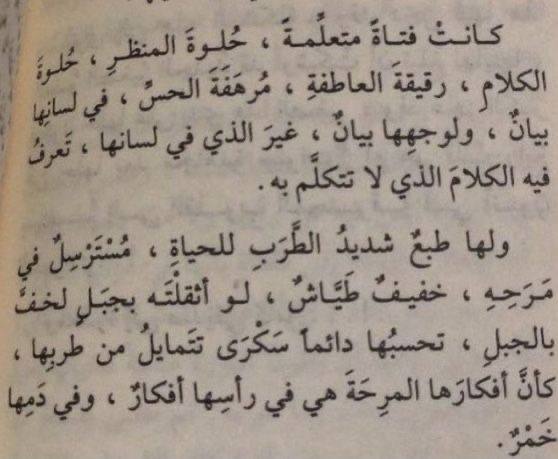 كـانـتْ فتـاةً متعلِّمـةً ، حُلـوةَ المنظـرِ ، حُلـوةَ
الكلامِ ، رقيقةَ العاطفةِ ، مُرهَفَةَ الحسِّ ، في لسانِها
بيانٌ ، ولوجهِها بيانٌ ، غيرَ الذي في لسانها ، تَعرفُ
فيه الكلامَ الذي لا تتكلَّم به .
ولها طبعٌ شديدُ الطَّرَبِ للحياةِ ، مُسْتَرْسِلٌ في
مَرَحِـهِ ، خفيـفٌ طَيَّـاشٌ ، لـو أثقلْتَـه بجبَـلٍ لخفَّ
بالجبلِ ، تحسبُها دائماً سَكْرَى تتَمايلُ من طربِها ،
كأنَّ أفكارَها المرِحَةَ هي في رأسِها أفكارٌ ، وفي دَمِها
خَمْرٌ .